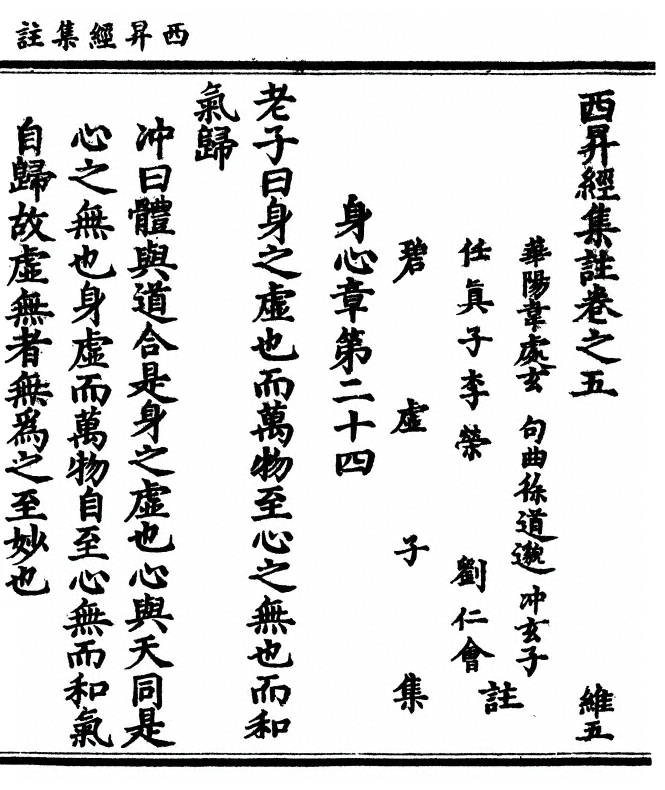 西昇經集註
西昇經集註卷之五 維五
華陽韋處玄 句曲徐道邈 冲玄子
任真子李榮 劉仁會 註
碧虛子集
身心章第二十四
老子曰身之虛也而萬物至心之無也而和
氣歸
冲曰體與道合是身之虛也心與天同是
心之無也身虛而萬物自至心無而和氣
自歸故虛無者無為之至妙也